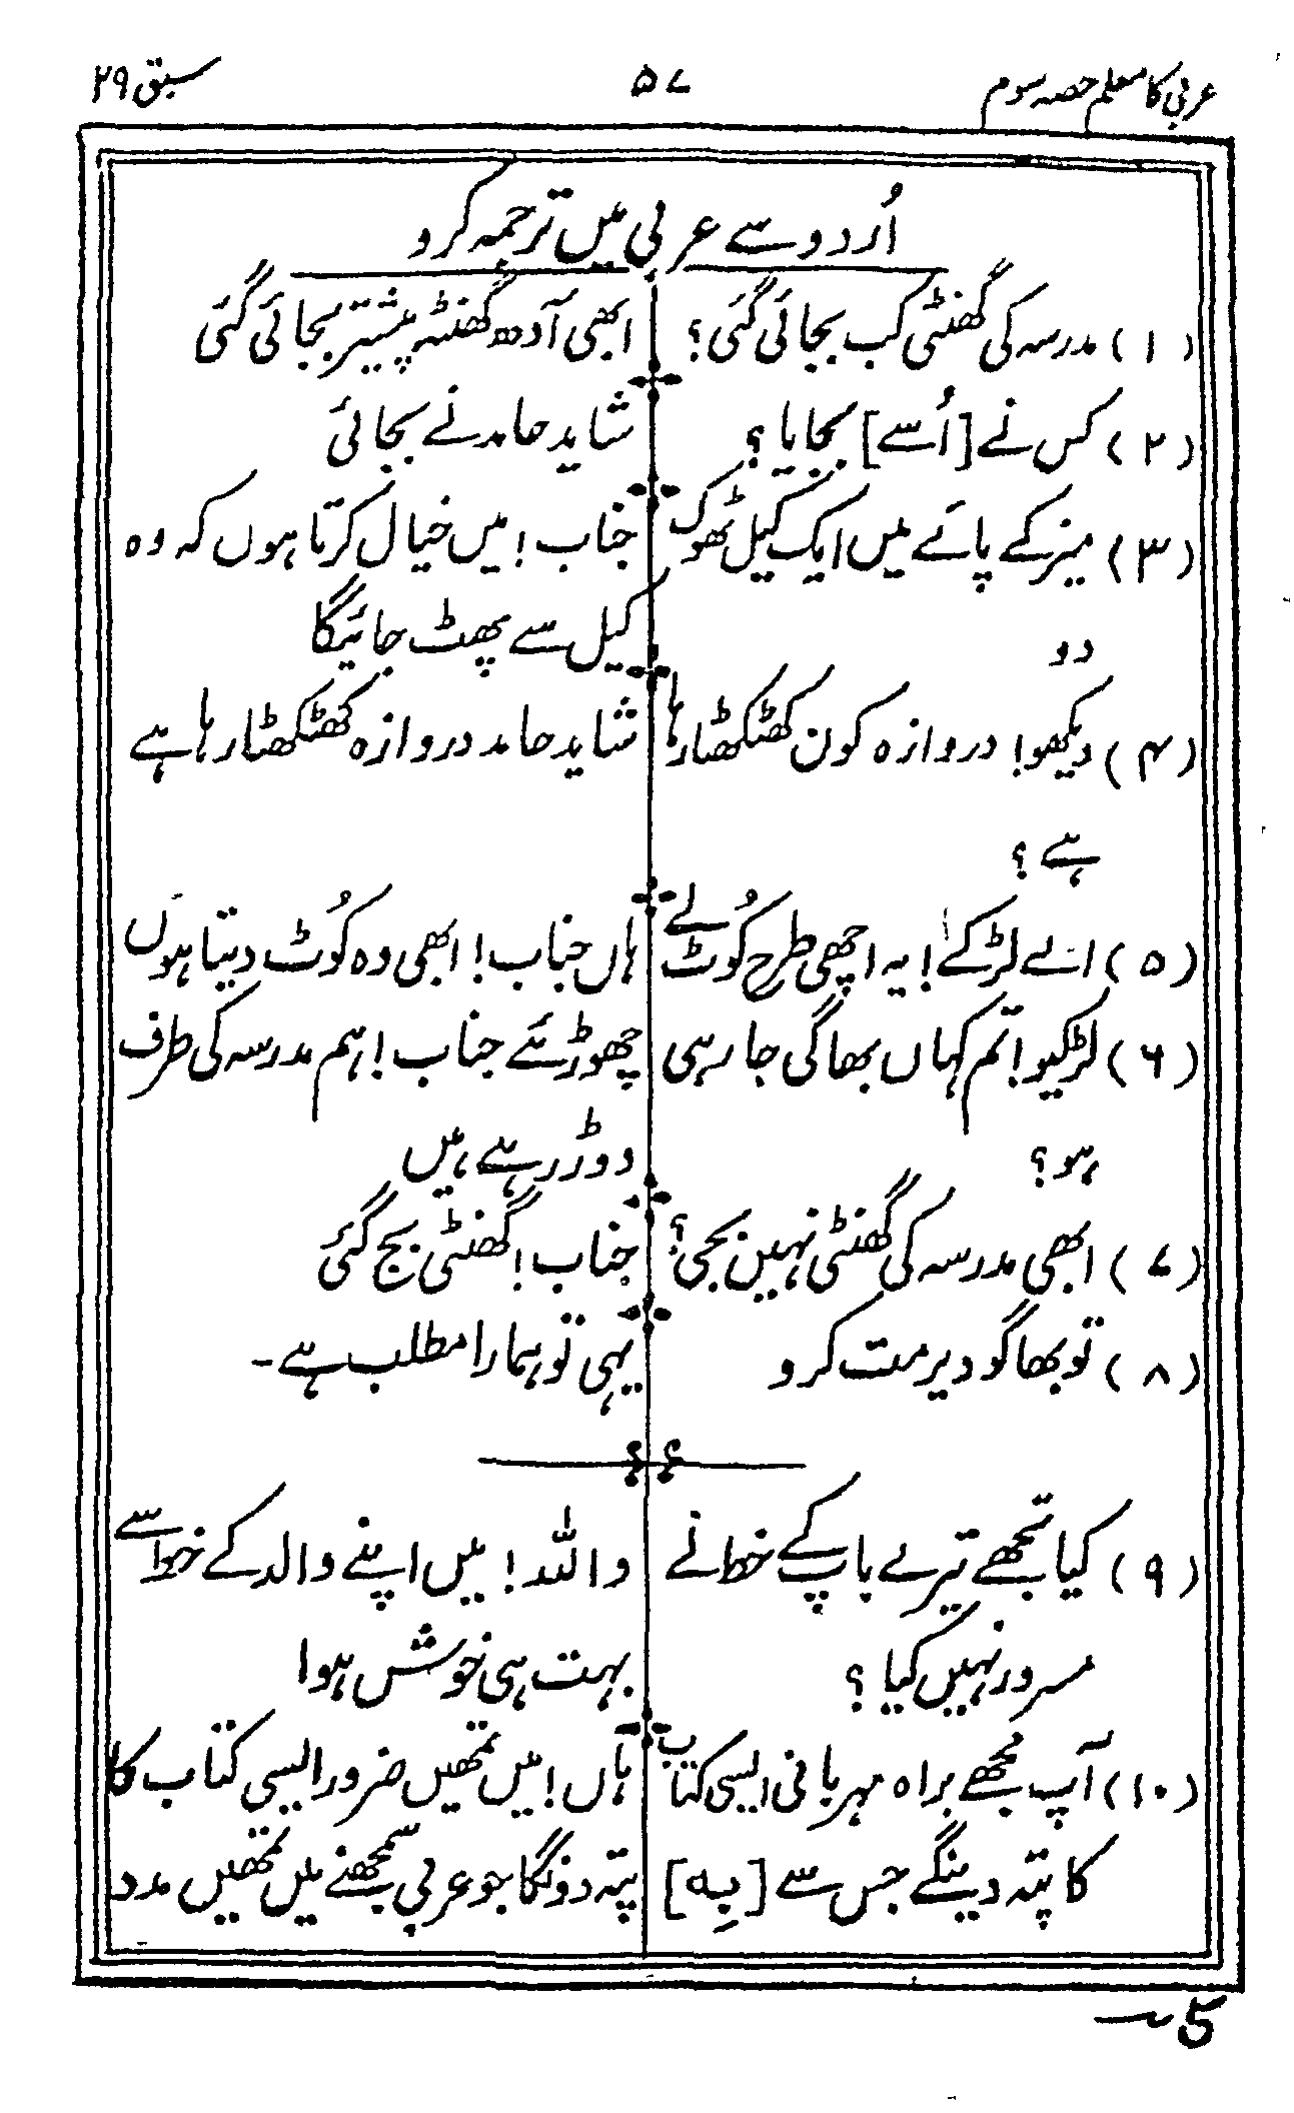 عربی کا معلم حصہ سوم
۵۷
سبق ۲۹
اُردو سے عربی میں ترجمہ کرو
(۱) مدرسہ کی گھنٹی کب بجائی گئی؟
ابھی آدھ گھنٹہ پیشتر بجائی گئی
(۲) کس نے [اُسے] بجایا؟
شاید حامد نے بجائی
(۳) میز کے پائے میں ایک کیل ٹھوک
دو
جناب! میں خیال کرتا ہوں کہ وہ
کیل سے پھٹ جائیگا
(۴) دیکھو! دروازہ کون کھٹکھٹا رہا
ہے؟
شاید حامد دروازہ کھٹکھٹا رہا ہے
(۵) اے لڑکے! یہ اچھی طرح کُوٹ لے
ہاں جناب! ابھی وہ کُوٹ دیتا ہوں
(۶) لڑکیو! تم کہاں بھاگی جا رہی
ہو؟
چھوڑئے جناب! ہم مدرسہ کی طرف
دوڑ رہے ہیں
(۷) ابھی مدرسہ کی گھنٹی نہیں بجی؟
جناب! گھنٹی بج گئی
(۸) تو بھاگو دیر مت کرو
یہی تو ہمارا مطلب ہے۔
(۹) کیا تجھے تیرے باپ کے خط نے
مسرور نہیں کیا؟
واللہ! میں اپنے والد کے خط سے
بہت ہی خوش ہوا
(۱۰) آپ مجھے براہ مہربانی ایسی کتاب
کا پتہ دینگے جس سے [بِہ]
ہاں! میں تمھیں ضرور ایسی کتاب کا
پتہ دونگا جو عربی سمجھنے میں تمھیں مدد